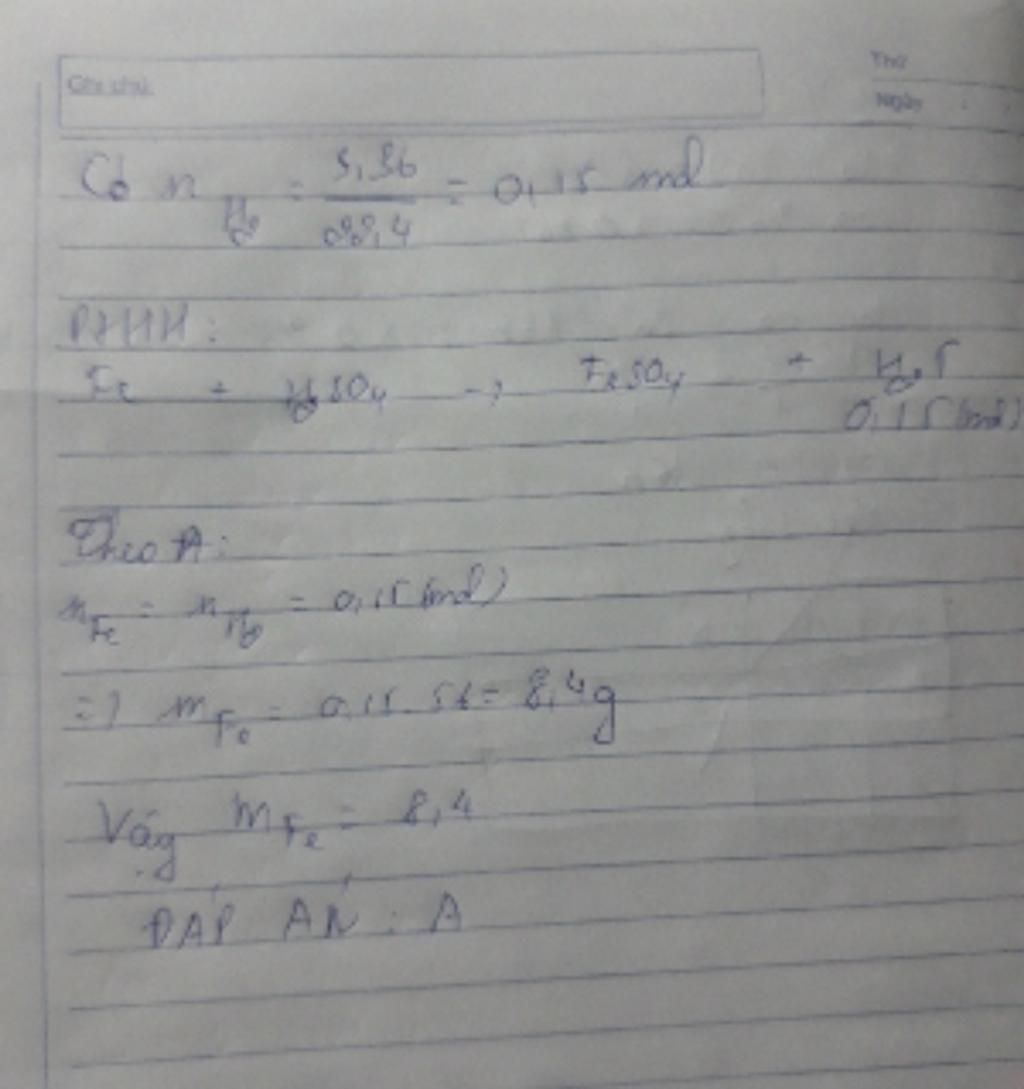 Ghi chú
Thứ
Ngày
Có n H2 = 3,36/22,4 = 0,15 mol
PTHH:
Fe + H2SO4 → FeSO4 + H2↑
0,15 (mol)
Theo pt:
nFe = nH2 = 0,15 (mol)
=> mFe = 0,15.56 = 8,4g
Vậy mFe = 8,4
ĐÁP ÁN: A